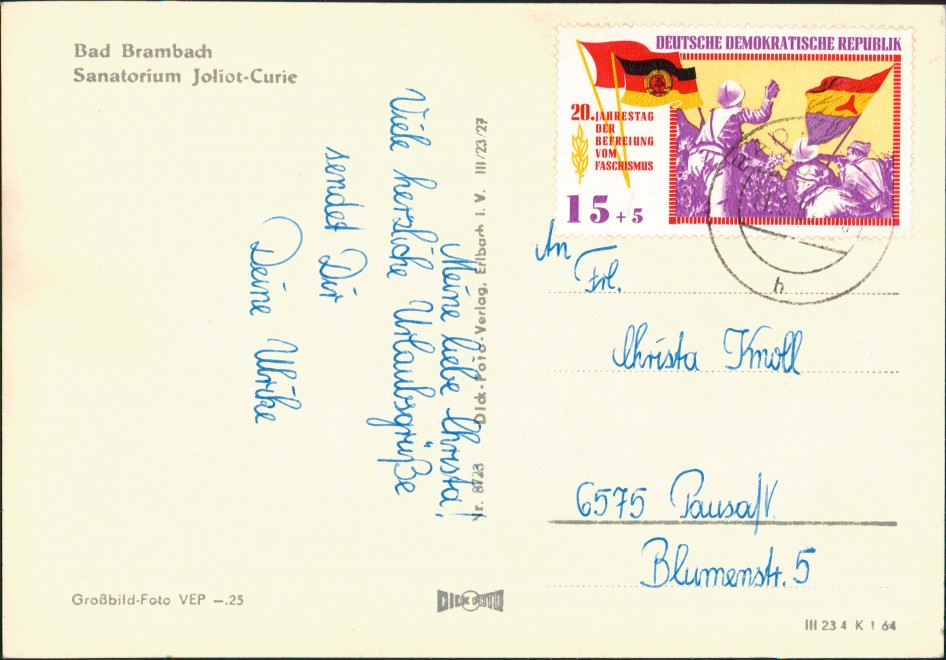 Bad Brambach
Sanatorium Joliot-Curie
DEUTSCHE DEMOKRATISCHE REPUBLIK
20. JAHRESTAG
DER
BEFREIUNG
VOM
FASCHISMUS
15 + 5
h
Meine liebe Christa!
Viele herzliche Urlaubsgrüße
sendet Dir
Deine Ulrike
Nr. 8723 Dick-Foto-Verlag, Erlbach i. V. III/23/27
An
Frl.
Christa Knoll
6575 Pausa/V.
Blumenstr. 5
Großbild-Foto VEP —.25
DICK FOTO
III 23 4 K 1 64